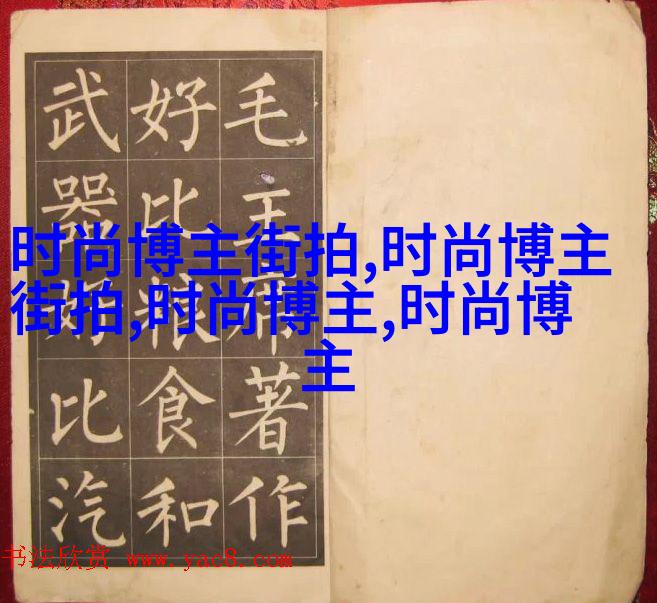 毛主席著作
好比粮食和
武器好比汽
时尚博主街拍,时尚博主
街拍,时尚博主,时尚博
主
书法欣赏 www.yac8.com